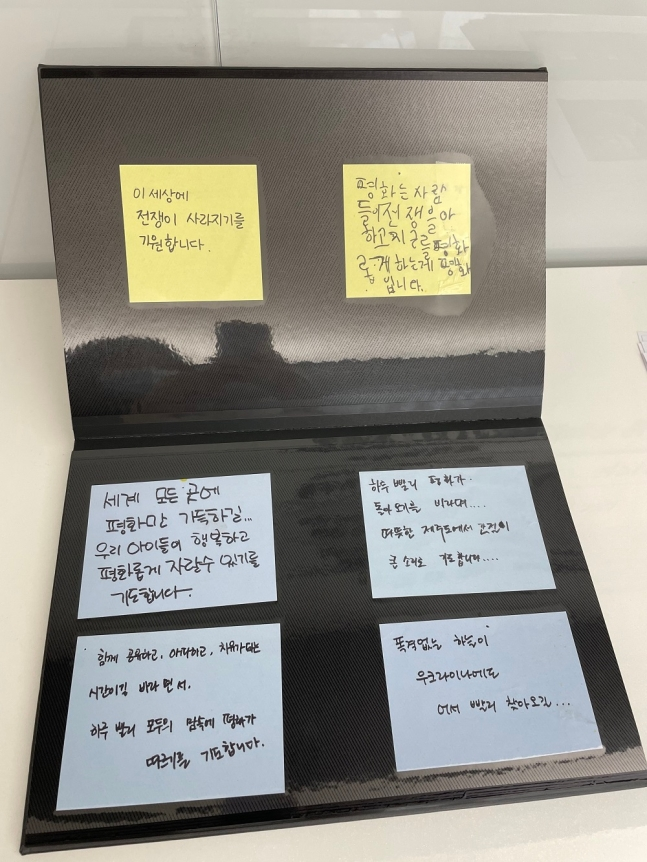 이 세상에
전쟁이 사라지기를
기원합니다.
평화는 사람
들이 전쟁을 아
하고 지구를 평화
롭게 하는게 평화
입니다.
세계 모든 곳에
평화만 가득하길...
우리 아이들이 행복하고
평화롭게 자랄수 있기를
기도합니다.
하루 빨리 평화가
돌아 오기를 바라며....
따뜻한 제주도에서 간절히
큰 소리로 기도합니다....
함께 공유하고, 하고, 치유가 되는
시간이길 바라면서.
하루 빨리 모두의 맘속에 평화가
기를 기도합니다.
폭격없는 하늘이
우크라이나에도
어서 빨리 찾아오길...